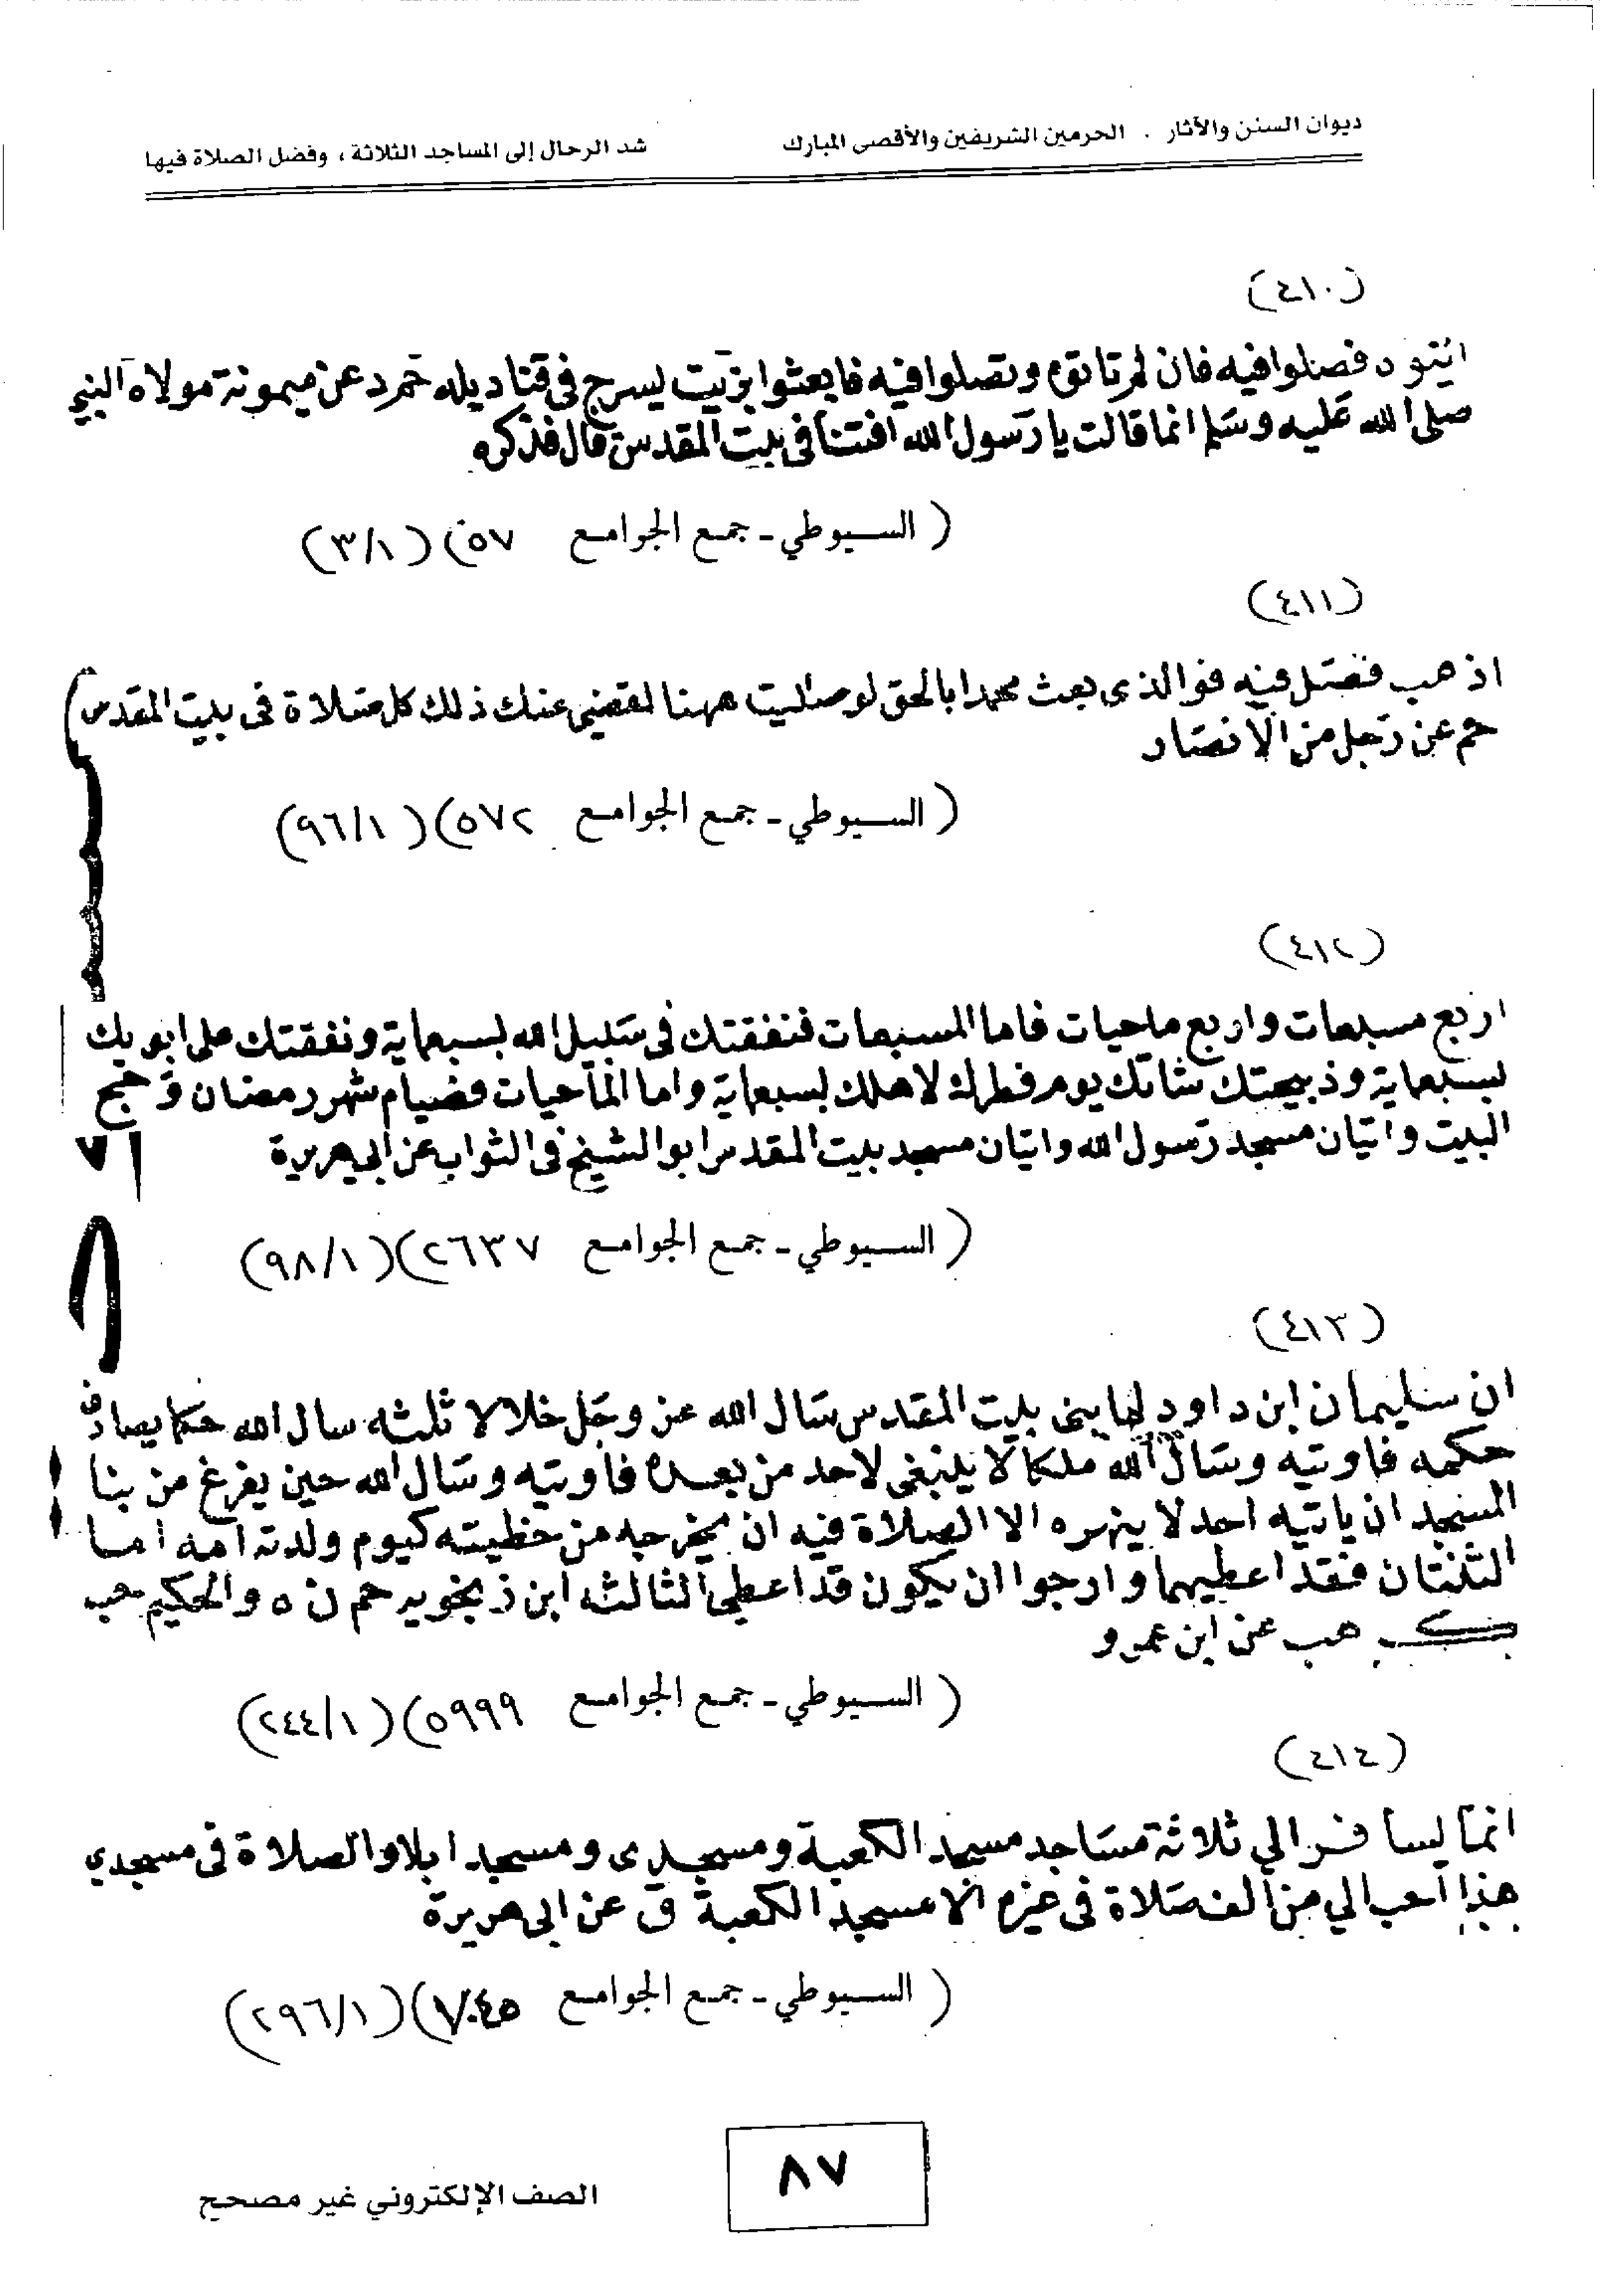 ديوان السنن والآثار . الحرمين الشريفين والأقصى المبارك شد الرحال إلى المساجد الثلاثة ، وفضل الصلاة فيها
(٤١٠)
ائتوه فصلوا فيه فان لم تاتوه وتصلوا فيه فابعثوا بزيت يسرج فى قناديله حم د عن ميمونة مولاة النبي
صلى الله عليه وسلم انها قالت يا رسول الله افتنا فى بيت المقدس قال فذكره
( السيوطي - جمع الجوامع ٥٧) (٣/١)
(٤١١)
اذهب فصل فيه فوالذى بعث محمدا بالحق لو صليت ههنا لقضى عنك ذلك كل صلاة فى بيت المقدس
حم عن رجل من الانصار
( السيوطي - جمع الجوامع ٥٧٢) (٩٦/١)
(٤١٢)
اربع مسبعات واربع ماحيات فاما المسبعات فنفقتك فى سبيل الله بسبعماية ونفقتك على ابويك
بسبعماية وذبيحتك شاتك يوم فطرك لاهلك بسبعماية واما الماحيات فصيام شهر رمضان وحج
البيت واتيان مسجد رسول الله واتيان مسجد بيت المقدس ابو الشيخ فى الثواب عن ابى هريرة
٧١
( السيوطي - جمع الجوامع ٢٦٣٧) (٩٨/١)
(٤١٣)
ان سليمان ابن داود لما بنى بيت المقدس سال الله عز وجل خلالا ثلثه سال الله حكما يصادف
حكمه فاوتيه وسال الله ملكا لا ينبغى لاحد من بعده فاوتيه وسال الله حين يفرغ من بنا
المسجد ان ياتيه احد لا ينهره الا الصلاة فيه ان يخرجه من خطيته كيوم ولدته امه اما
الثنتان فقد اعطيهما وارجوا ان يكون قد اعطى الثالثه ابن زنجويه حم ن ه والحكيم حب
ك هب عن ابن عمرو
( السيوطي - جمع الجوامع ٥٩٩٩) (٢٤٤/١)
(٤١٤)
انما يسافر الي ثلاثة مساجد مسجد الكعبة ومسجدى ومسجد ايلا والصلاة فى مسجدي
هذا احب الي من الف صلاة فى غيره الا مسجد الكعبة ق عن ابى هريرة
( السيوطي - جمع الجوامع ٧٠٤٥) (٢٩٦/١)
٨٧
الصف الإلكتروني غير مصحح